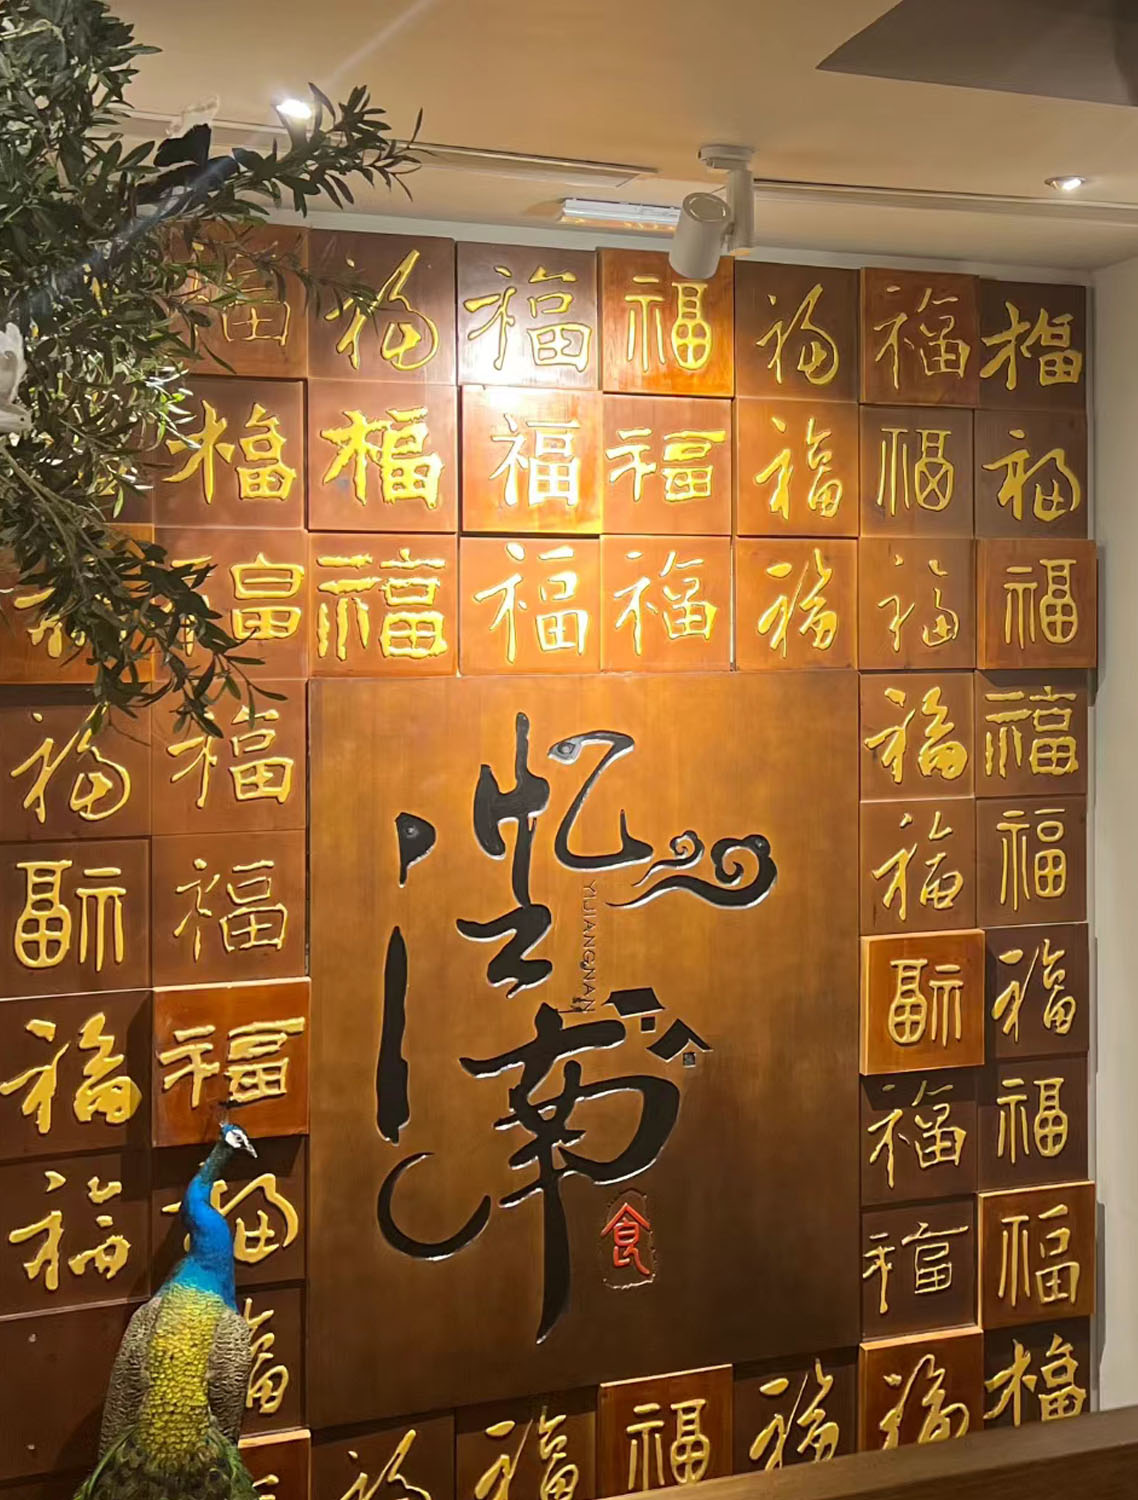 福福福福福福福
福福福福福福福
福福福福福福福
福福
福福
福福
福福
福
忆江南
YIJIANGNAN
食
福福
福福
福福
福福
福福
福福福福福福